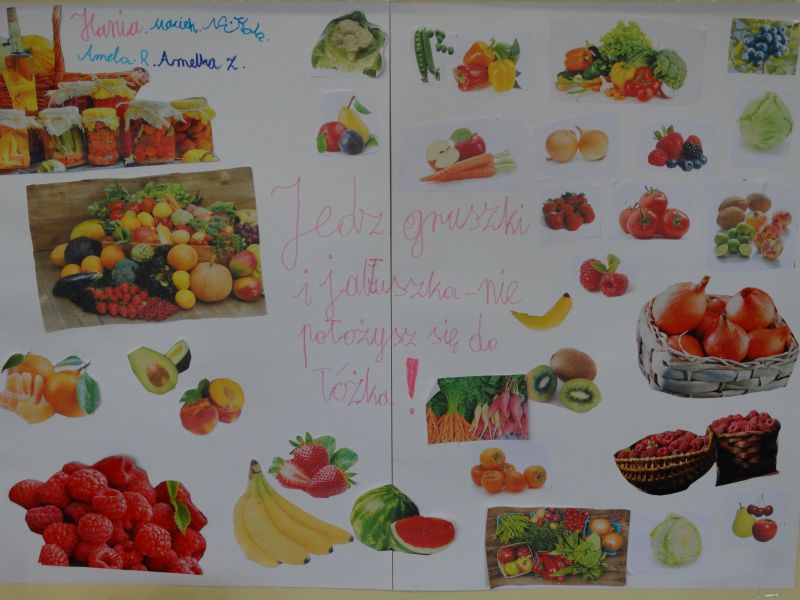 Hania. Maciek. Nikola.
Amela R. Amelka Z.
Jedz gruszki
i jabłuszka-nie
położysz się do
łóżka!